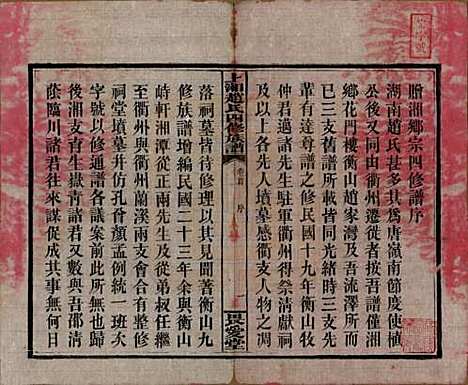 贈湘鄉宗四修譜序
湖南趙氏甚多其爲唐嶺南節度使植
公後又同由衢州遷徙者按吾譜僅湘
鄉花門樓衡山趙家灣及吾流澤所而
已三支皆同光緒時三先
輩有達尊譜之修民國十九年衡山牧
仲君邁諸先生駐軍衢州得祭清獻祠
及以上各先人墳墓感衢支人物之凋
上湘趙氏四修族譜
卷首
序
琴鶴堂
落祠墓皆待修理以其見聞著衡山九
修族譜增編民國二十三年余與衡山
峙軒湘潭從正兩先生及從弟叔任繼
至衢州與衢州蘭溪兩支會合並整修
祠堂墳墓并仿孔曾顏孟例統一班次
字號以修通譜各議案前年吾邑
湘支青生諸君又數與吾邵清
蔭臨川諸君往來謀促成其事無何日